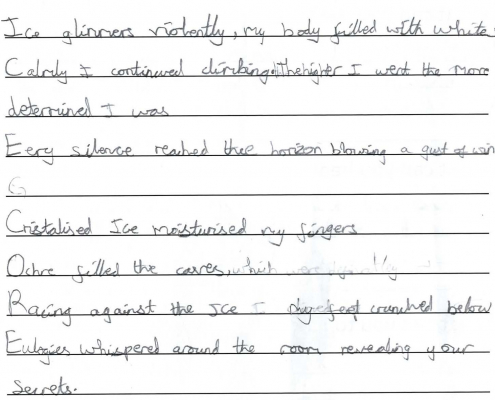 Ice glimmers violently, my body filled with white
Calmly I continued climbing. The higher I went the more
determined I was
Eery silence reached thee horizon blowing a gust of win
G
Cristalised Ice moisturised my fingers
Ochre filled the caves, which were
Racing against the Ice I my feet crunched below
Eulogies whispered around the room revealing your
Secrets.